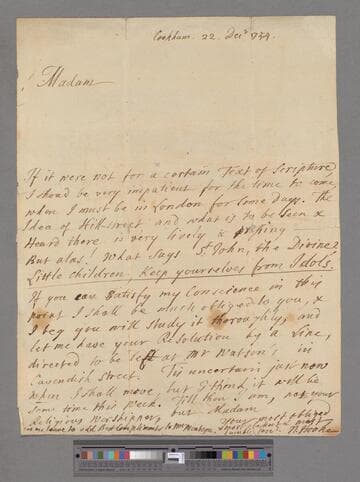 Cookham. 22. Decr 1754.
Madam
If it were not for a certain Text of Scripture
I shoud be very impatient for the time to come
when I must be in London for some days. The
Idea of Hill street and what is to be Seen &
Heard there is very lively &
But alas! What Says St John, the Divine?
Little children keep yourselves from Idols.
If you can Satisfy my Conscience in this
point I shall be much obliged to you, &
I beg you will study it thoroughly, and
let me have your Resolution by a Line,
directed to be left at Mr Watson's in
Cavendish Street. Tis uncertain just now
when I shall move, but I think it will be
Some time this Week. Till then I am, not your
Religious Worshipper, but Madam
Your most obliged
leave to add Best Compliments to Mr Montagu
most
humble